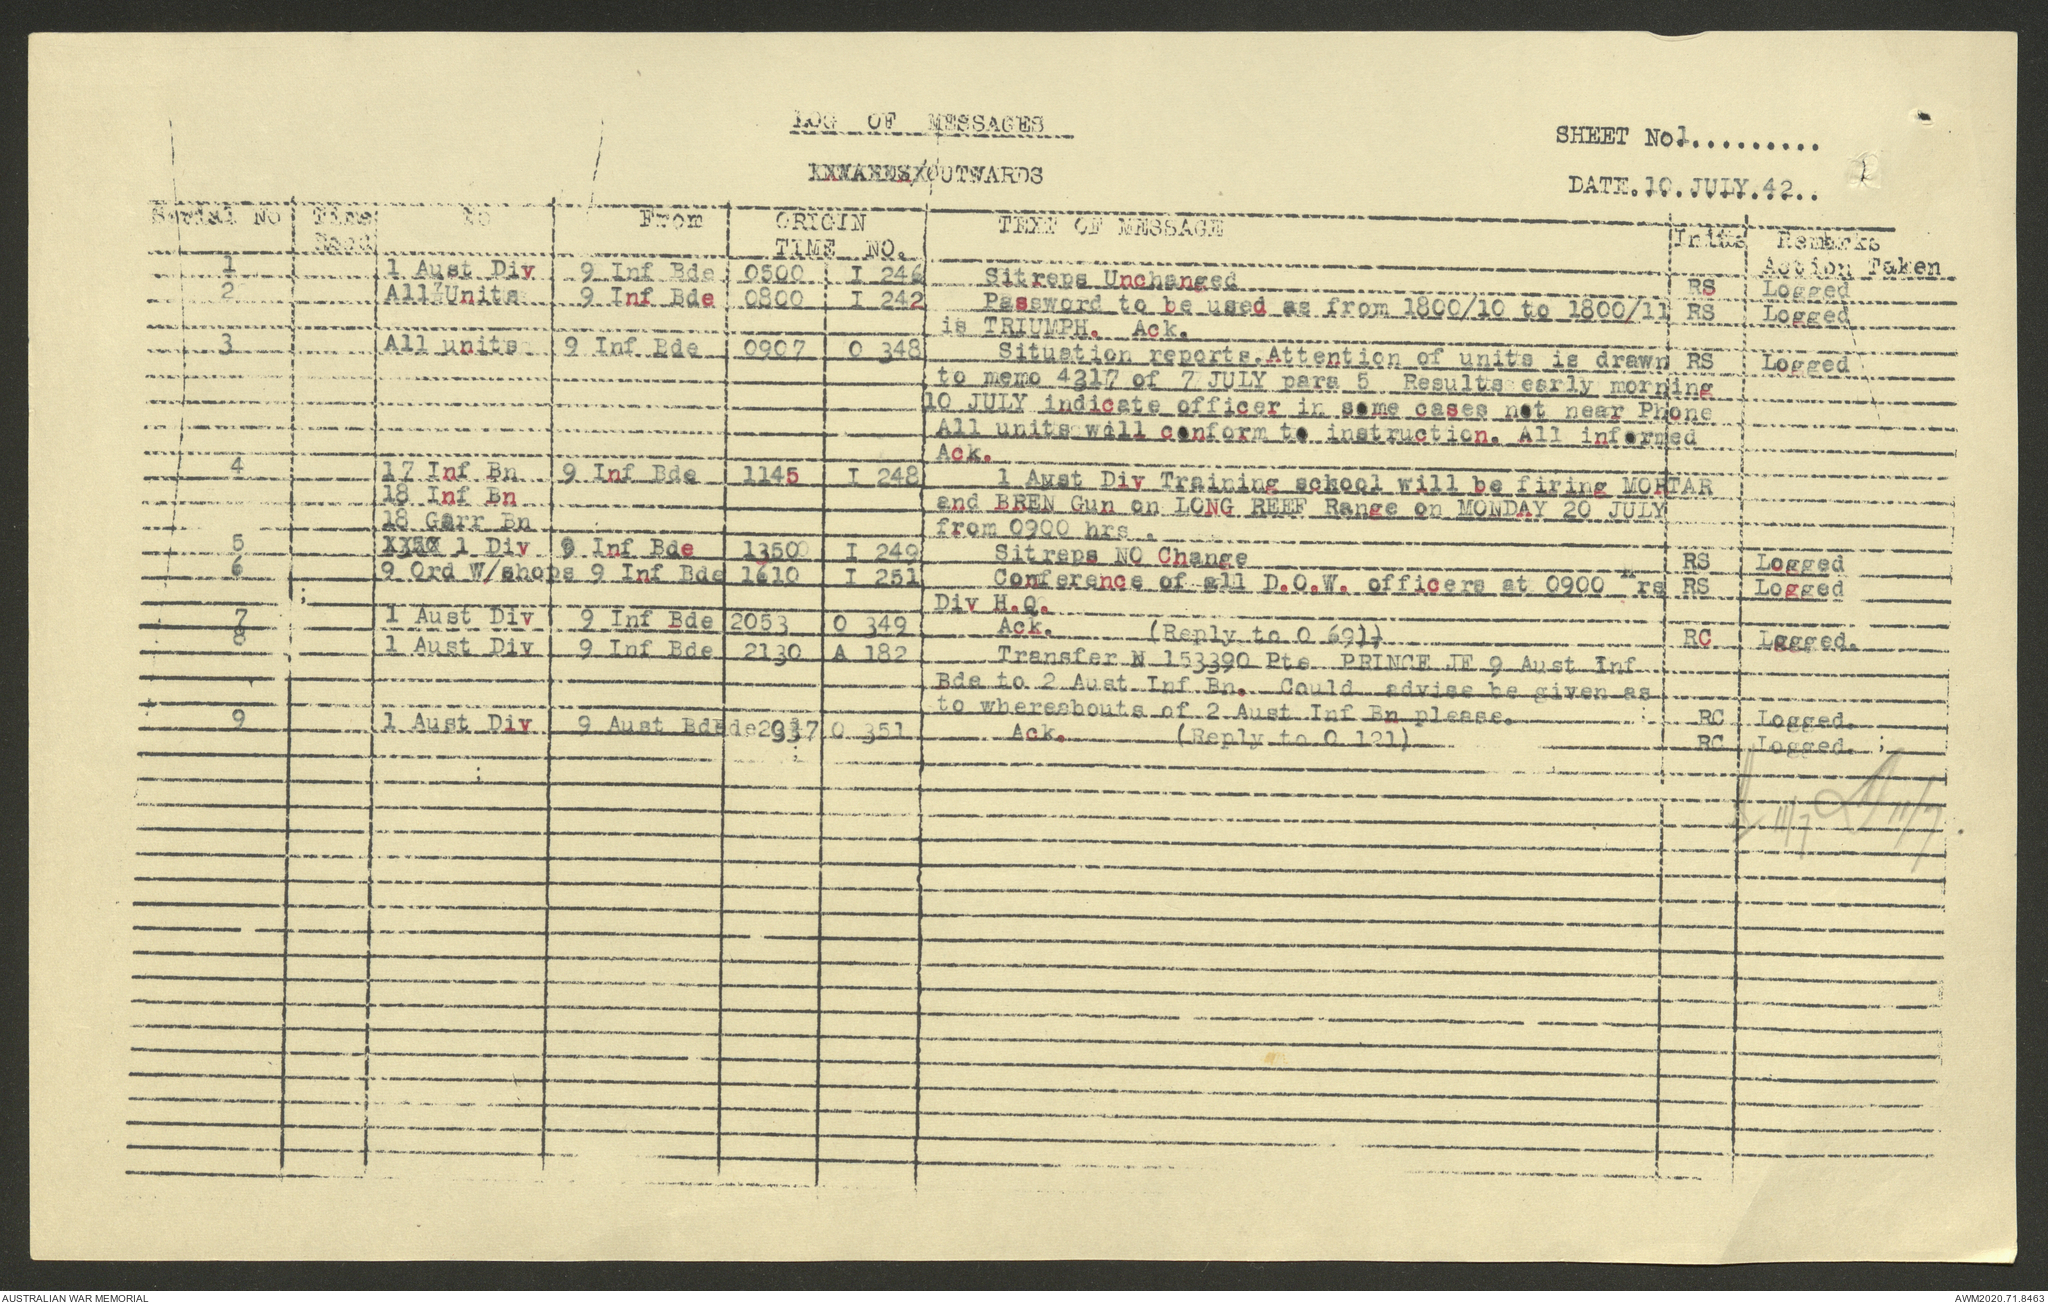 LOG OF MESSAGES
SHEET No1..........
OUTWARDS
1
DATE.10.JULY.42..
Serial No Time Recd To From ORIGIN TIME NO. TEXT OF MESSAGE Initls Remarks Action Taken
1 1 Aust Div 9 Inf Bde 0500 I 246 Sitreps Unchanged RS Logged
2 All Units 9 Inf Bde 0800 I 242 Password to be used as from 1800/10 to 1800/11 RS Logged
is TRIUMPH. Ack.
3 All units 9 Inf Bde 0907 O 348 Situation reports.Attention of units is drawn RS Logged
to memo 4317 of 7 JULY para 5 Results early morning
10 JULY indicate officer in some cases not near Phone
All units will conform to instruction. All informed
Ack.
4 17 Inf Bn 9 Inf Bde 1145 I 248 1 Aust Div Training school will be firing MORTAR
18 Inf Bn and BREN Gun on LONG REEF Range on MONDAY 20 JULY
18 Garr Bn from 0900 hrs .
5 1 Div 9 Inf Bde 1350 I 249 Sitreps NO Change RS Logged
6 9 Ord W/shops 9 Inf Bde 1610 I 251 Conference of all D.O.W. officers at 0900 Hrs RS Logged
Div H.Q.
7 1 Aust Div 9 Inf Bde 2053 O 349 Ack. (Reply to O 691) RC Logged.
8 1 Aust Div 9 Inf Bde 2130 A 182 Transfer N 153390 Pte PRINCE JE 9 Aust Inf
Bde to 2 Aust Inf Bn. Could advise be given as
to whereabouts of 2 Aust Inf Bn please. RC Logged.
9 1 Aust Div 9 Aust Bde O 351 Ack. (Reply to O 121) RC Logged.
11/7 11/7
AUSTRALIAN WAR MEMORIAL
AWM2020.71.8463